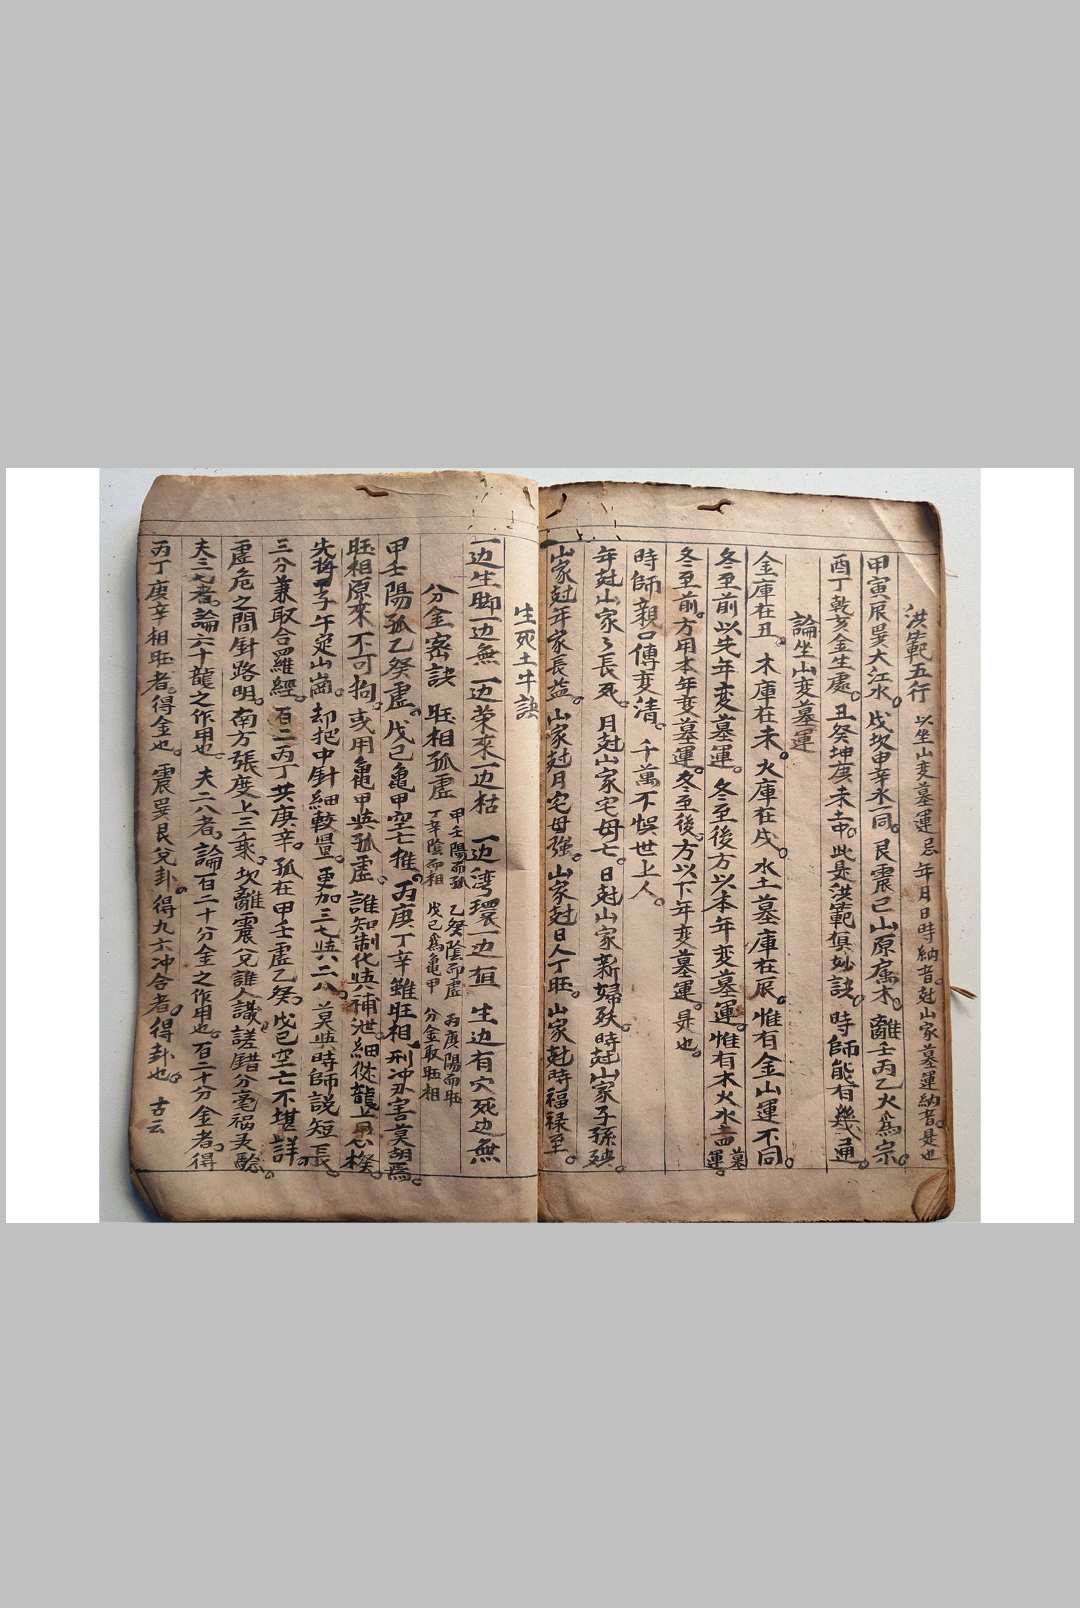 洪範五行 以坐山变墓運忌 年月日時納音尅山家墓運納音是也
甲寅辰巽大江水。戌坎申辛水一同。艮震巳山原属木。離壬丙乙火為宗。
酉丁乾亥金生處。丑癸坤庚未土中。此是洪範俱妙訣。時師能有幾人通。
論坐山变墓運
金庫在丑。木庫在未。火庫在戌。水土墓庫在辰。惟有金山運不同。
冬至前以先年变墓運。冬至後方以本年变墓運。惟有木火水土四墓運。
冬至前。方用本年变墓運。冬至後。方以下年变墓運。是也。
時師親口傳变清。千萬不悞世上人。
年尅山家々長死。月尅山家宅母亡。日尅山家新婦殀。時尅山家子孫殃。
山家尅年家長益。山家尅月宅母強。山家尅日人丁旺。山家尅時福禄至。
生死土牛訣
一边生脚一边無 一边荣來一边枯 一边湾環一边直 生边有穴死边無
分金密訣 旺相孤虚 甲壬陽而孤 乙癸陰而虚 丙庚陽而旺
丁辛陰而相 戊己為亀甲 分金取旺相
甲壬陽孤乙癸虚。戊己亀甲空亡推。丙庚丁辛雖旺相。刑冲刃害莫胡為。
旺相原來不可拘。或用亀甲與孤虚。誰知制化與補泄。細從龍上見心機。
先將甲子午定山崗。却把中針細較量。更加三七與二八。莫與時師説短長。
三分兼取合羅經。百二丙丁共庚辛。孤在甲壬虚乙癸。戊己空亡不堪詳。
虚危之間針路明。南方張度上三乘。坎離震兌誰人識。差錯分毫禍失驗。
夫三七者。論六十龍之作用也。夫二八者。論百二十分金之作用也。百二十分金者。得
丙丁庚辛相旺者。得金也。震巽艮兌卦。得九六冲合者。得卦也。古云